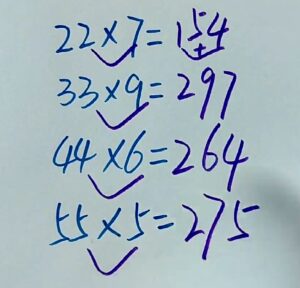 22×7=154
+
33×9=297
44×6=264
55×5=275